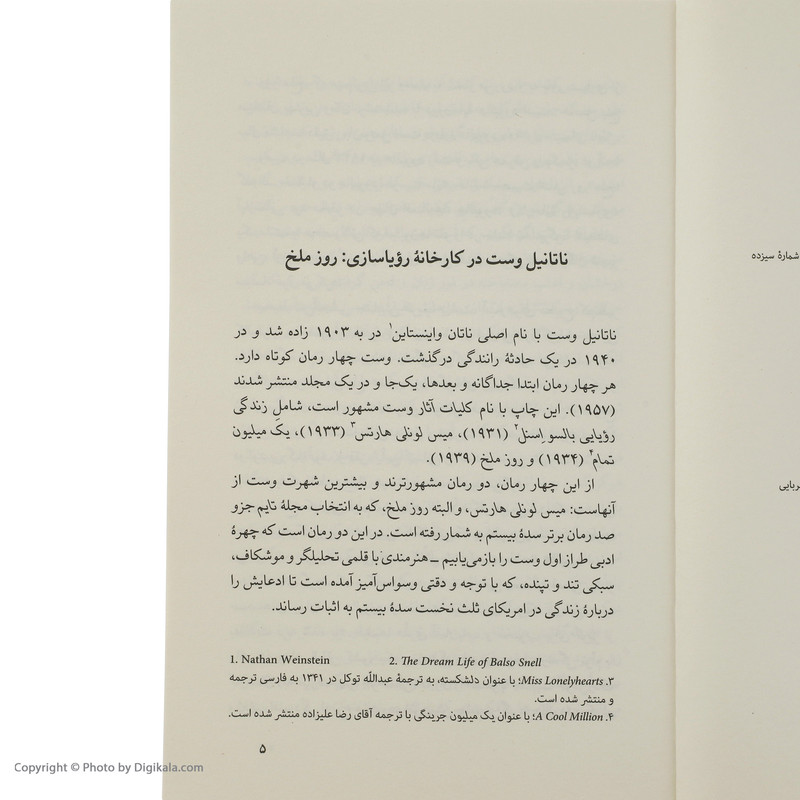 شمارهٔ سیزده
ناتانیل وست در کارخانهٔ رؤیاسازی: روز ملخ
ناتانیل وست با نام اصلی ناتان واینستاین۱ در به ۱۹۰۳ زاده شد و در
۱۹۴۰ در یک حادثهٔ رانندگی درگذشت. وست چهار رمان کوتاه دارد.
هر چهار رمان ابتدا جداگانه و بعدها، یک‌جا و در یک مجلد منتشر شدند
(۱۹۵۷). این چاپ با نام کلیات آثار وست مشهور است، شاملِ زندگی
رؤیایی بالسو اِسنل۲ (۱۹۳۱)، میس لونلی هارتس۳ (۱۹۳۳)، یک میلیون
تمام۴ (۱۹۳۴) و روز ملخ (۱۹۳۹).
از این چهار رمان، دو رمان مشهورترند و بیشترین شهرت وست از
آنهاست: میس لونلی هارتس، و البته روز ملخ، که به انتخاب مجلهٔ تایم جزو
صد رمان برتر سدهٔ بیستم به شمار رفته است. در این دو رمان است که چهرهٔ
ادبی طراز اول وست را بازمی‌یابیم ــ هنرمندی با قلمی تحلیلگر و موشکاف،
سبکی تند و تپنده، که با توجه و دقتی وسواس‌آمیز آمده است تا ادعایش را
دربارهٔ زندگی در امریکای ثلث نخست سدهٔ بیستم به اثبات رساند.
1. Nathan Weinstein 2. The Dream Life of Balso Snell
۳. Miss Lonelyhearts؛ با عنوان دلشکسته، به ترجمهٔ عبداللّه توکل در ۱۳۴۱ به فارسی ترجمه
و منتشر شده است.
۴. A Cool Million؛ با عنوان یک میلیون جرینگی با ترجمه آقای رضا علیزاده منتشر شده است.
۵
Copyright © Photo by Digikala.com